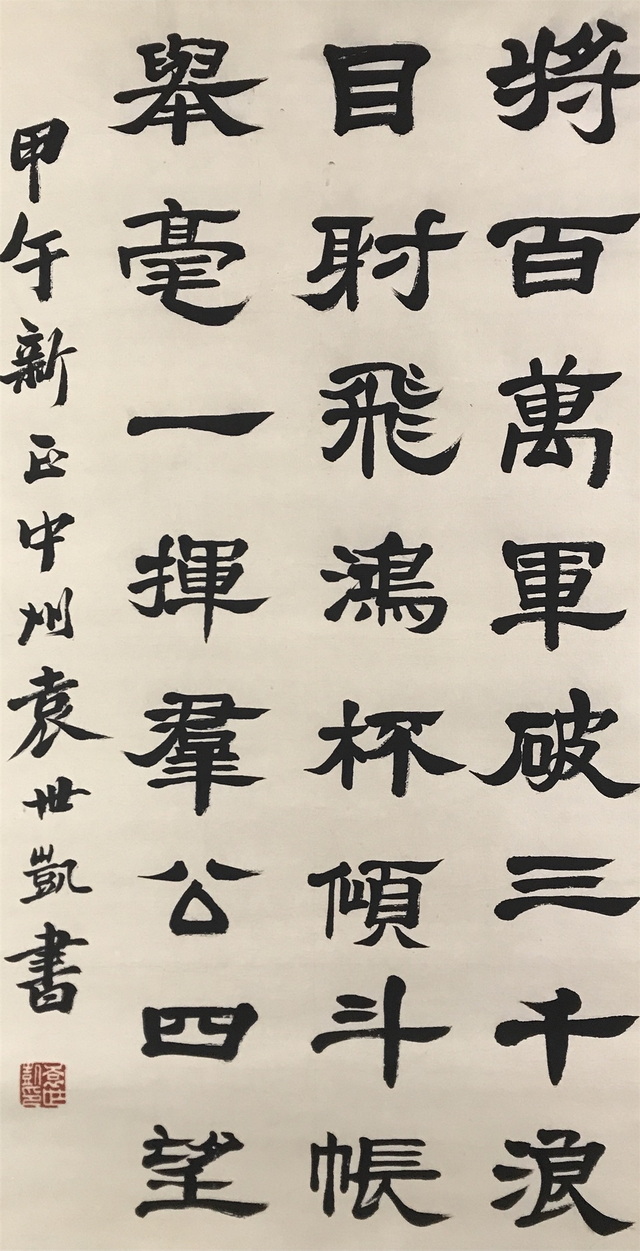 將百萬軍破三千浪
目射飛鴻杯傾斗帳
舉毫一揮羣公四望
甲午新正中州袁世凱書